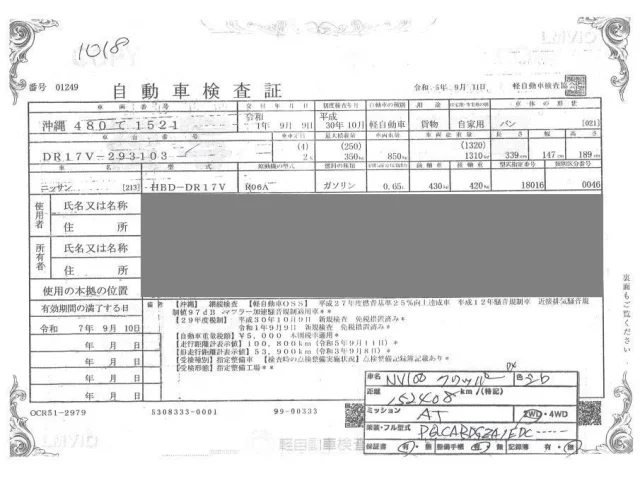 1018
番号 01249
自動車検査証
令和 5年 9月 11日 軽自動車検査協
車両番号 交付年月日 初度検査年月 自動車の種別 用途 車体の形状
沖縄 480 て 1521 令和 1年 9月 9日 平成 30年 10月 軽自動車 貨物 自家用 バン [021]
車台番号 乗車定員 最大積載量 車両重量 車両総重量 長さ 幅 高さ
DR17V-293103 (4) 2人 (250) 350kg 850kg (1320) 1310kg 339cm 147cm 189cm
車名 型式 原動機の型式 燃料の種類 型式指定番号 類別区分番号
ニッサン [213] HBD-DR17V R06A ガソリン 0.65L 430kg 420kg 18016 0046
使用者 氏名又は名称
住所
所有者 氏名又は名称
住所
使用の本拠の位置
有効期間の満了する日
令和 7年 9月 10日
年 月 日
年 月 日
年 月 日
年 月 日
備考 【沖縄】 継続検査 【軽自動車OSS】 平成27年度燃費基準25%向上達成車 平成12年騒音規制車 近接排気騒音規
制値97dB マフラー加速騒音規制適用車**
【29年度税制】 平成30年10月9日 新規検査 免税措置済み*
令和1年9月9日 新規検査 免税措置済み*
【自動車重量税額】 ¥5,000 本則税率適用*
【走行距離計表示値】 100,800km (令和5年9月11日)*
【旧走行距離計表示値】 53,900km (令和3年9月8日)*
【受検種別】指定整備車 【検査時の点検整備実施状況】点検整備記録簿記載あり*
【受検形態】指定整備工場**
裏面もご覧ください
OCR51-2979 5308333-0001 99-00333
軽自動車検査
車名 NV100 クリッパー DX 色 シロ
距離 152408 km/(検記)
ミッション AT 2WD・4WD
架装・フル型式
保証書 有・無 整備手帳 有・無 記録簿 有・無